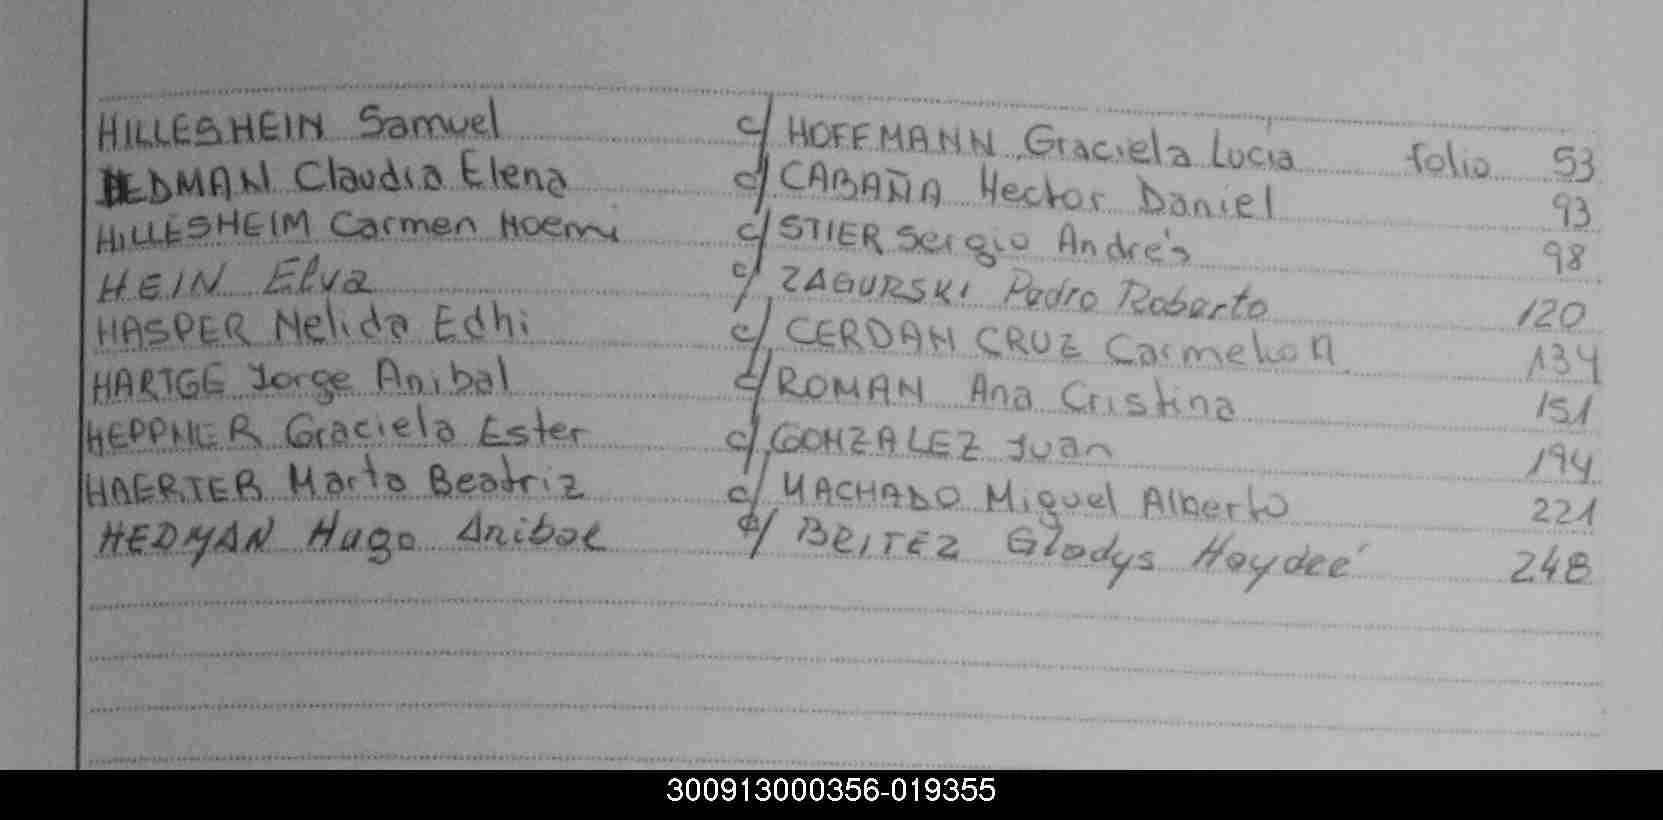 HILLESHEIN Samuel c/ HOFFMANN Graciela Lucia folio 53
HEDMAN Claudia Elena c/ CABAÑA Hector Daniel 93
HILLESHEIM Carmen Noemi c/ STIER Sergio Andrés 98
HEIN Elva c/ ZAGURSKI Pedro Roberto 120
HASPER Nelida Edhi c/ CERDAN CRUZ Carmelion 134
HARTGE Jorge Anibal c/ ROMAN Ana Cristina 151
HEPPNER Graciela Ester c/ GONZALEZ Juan 194
HAERTER Marta Beatriz c/ MACHADO Miguel Alberto 221
HEDMAN Hugo Anibal c/ BRITEZ Gladys Haydeé 248
300913000356-019355